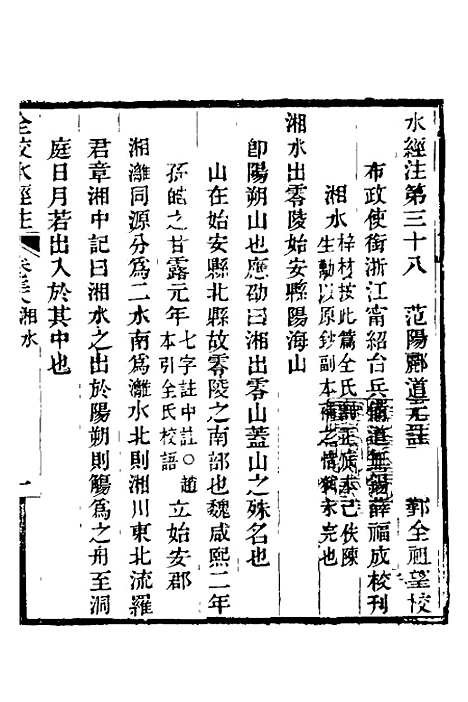 水經注第三十八　范陽酈道元注　鄞全祖望校
布政使銜浙江甯紹台兵備道無錫薛福成校刊
湘水
梓材按此篇全氏本已佚陳
生勱以原鈔副本補之惜未完也
湘水出零陵始安縣陽海山
卽陽朔山也應劭曰湘出零山蓋山之殊名也
山在始安縣北縣故零陵之南部也魏咸熙二年
孫皓之甘露元年
七字註中註○趙
本引全氏校語
立始安郡
湘灕同源分爲二水南爲灕水北則湘川東北流羅
君章湘中記曰湘水之出於陽朔則觴爲之舟至洞
庭日月若出入於其中也
全校水經注
卷三十八湘水
一